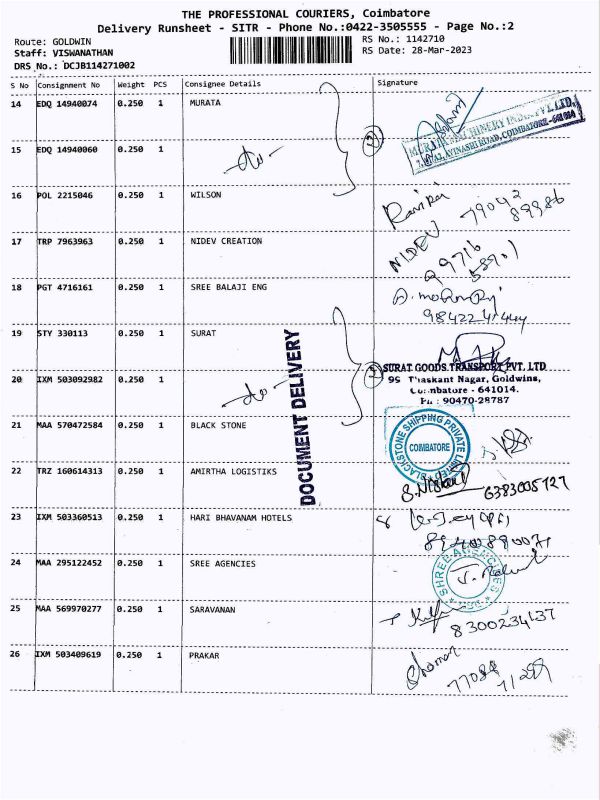 THE PROFESSIONAL COURIERS, Coimbatore
Delivery Runsheet - SITR - Phone No.:0422-3505555 - Page No.:2
Route: GOLDWIN
RS No.: 1142710
Staff: VISWANATHAN
RS Date: 28-Mar-2023
DRS No.: DCJB114271002
S No Consignment No Weight PCS Consignee Details Signature
14 EDQ 14940074 0.250 1 MURATA
2
15 EDQ 14940060 0.250 1 -do-
16 POL 2215046 0.250 1 WILSON
17 TRP 7963963 0.250 1 NIDEV CREATION
NIDEV
18 PGT 4716161 0.250 1 SREE BALAJI ENG
19 STY 330113 0.250 1 SURAT
DOCUMENT DELIVERY
SURAT GOODS TRANSPORT PVT. LTD
20 IXM 503092982 0.250 1 -do- 2
99 Thaskant Nagar, Goldwins,
Coimbatore - 641014.
Ph : 90470-28787
21 MAA 570472584 0.250 1 BLACK STONE
BLACKSTONE SHIPPING PRIVATE LIMITED
COIMBATORE
22 TRZ 160614313 0.250 1 AMIRTHA LOGISTIKS
6383008127
23 IXM 503360513 0.250 1 HARI BHAVANAM HOTELS
24 MAA 295122452 0.250 1 SREE AGENCIES
SHREE AGENCIES
25 MAA 569970277 0.250 1 SARAVANAN
8300234137
26 IXM 503409619 0.250 1 PRAKAR